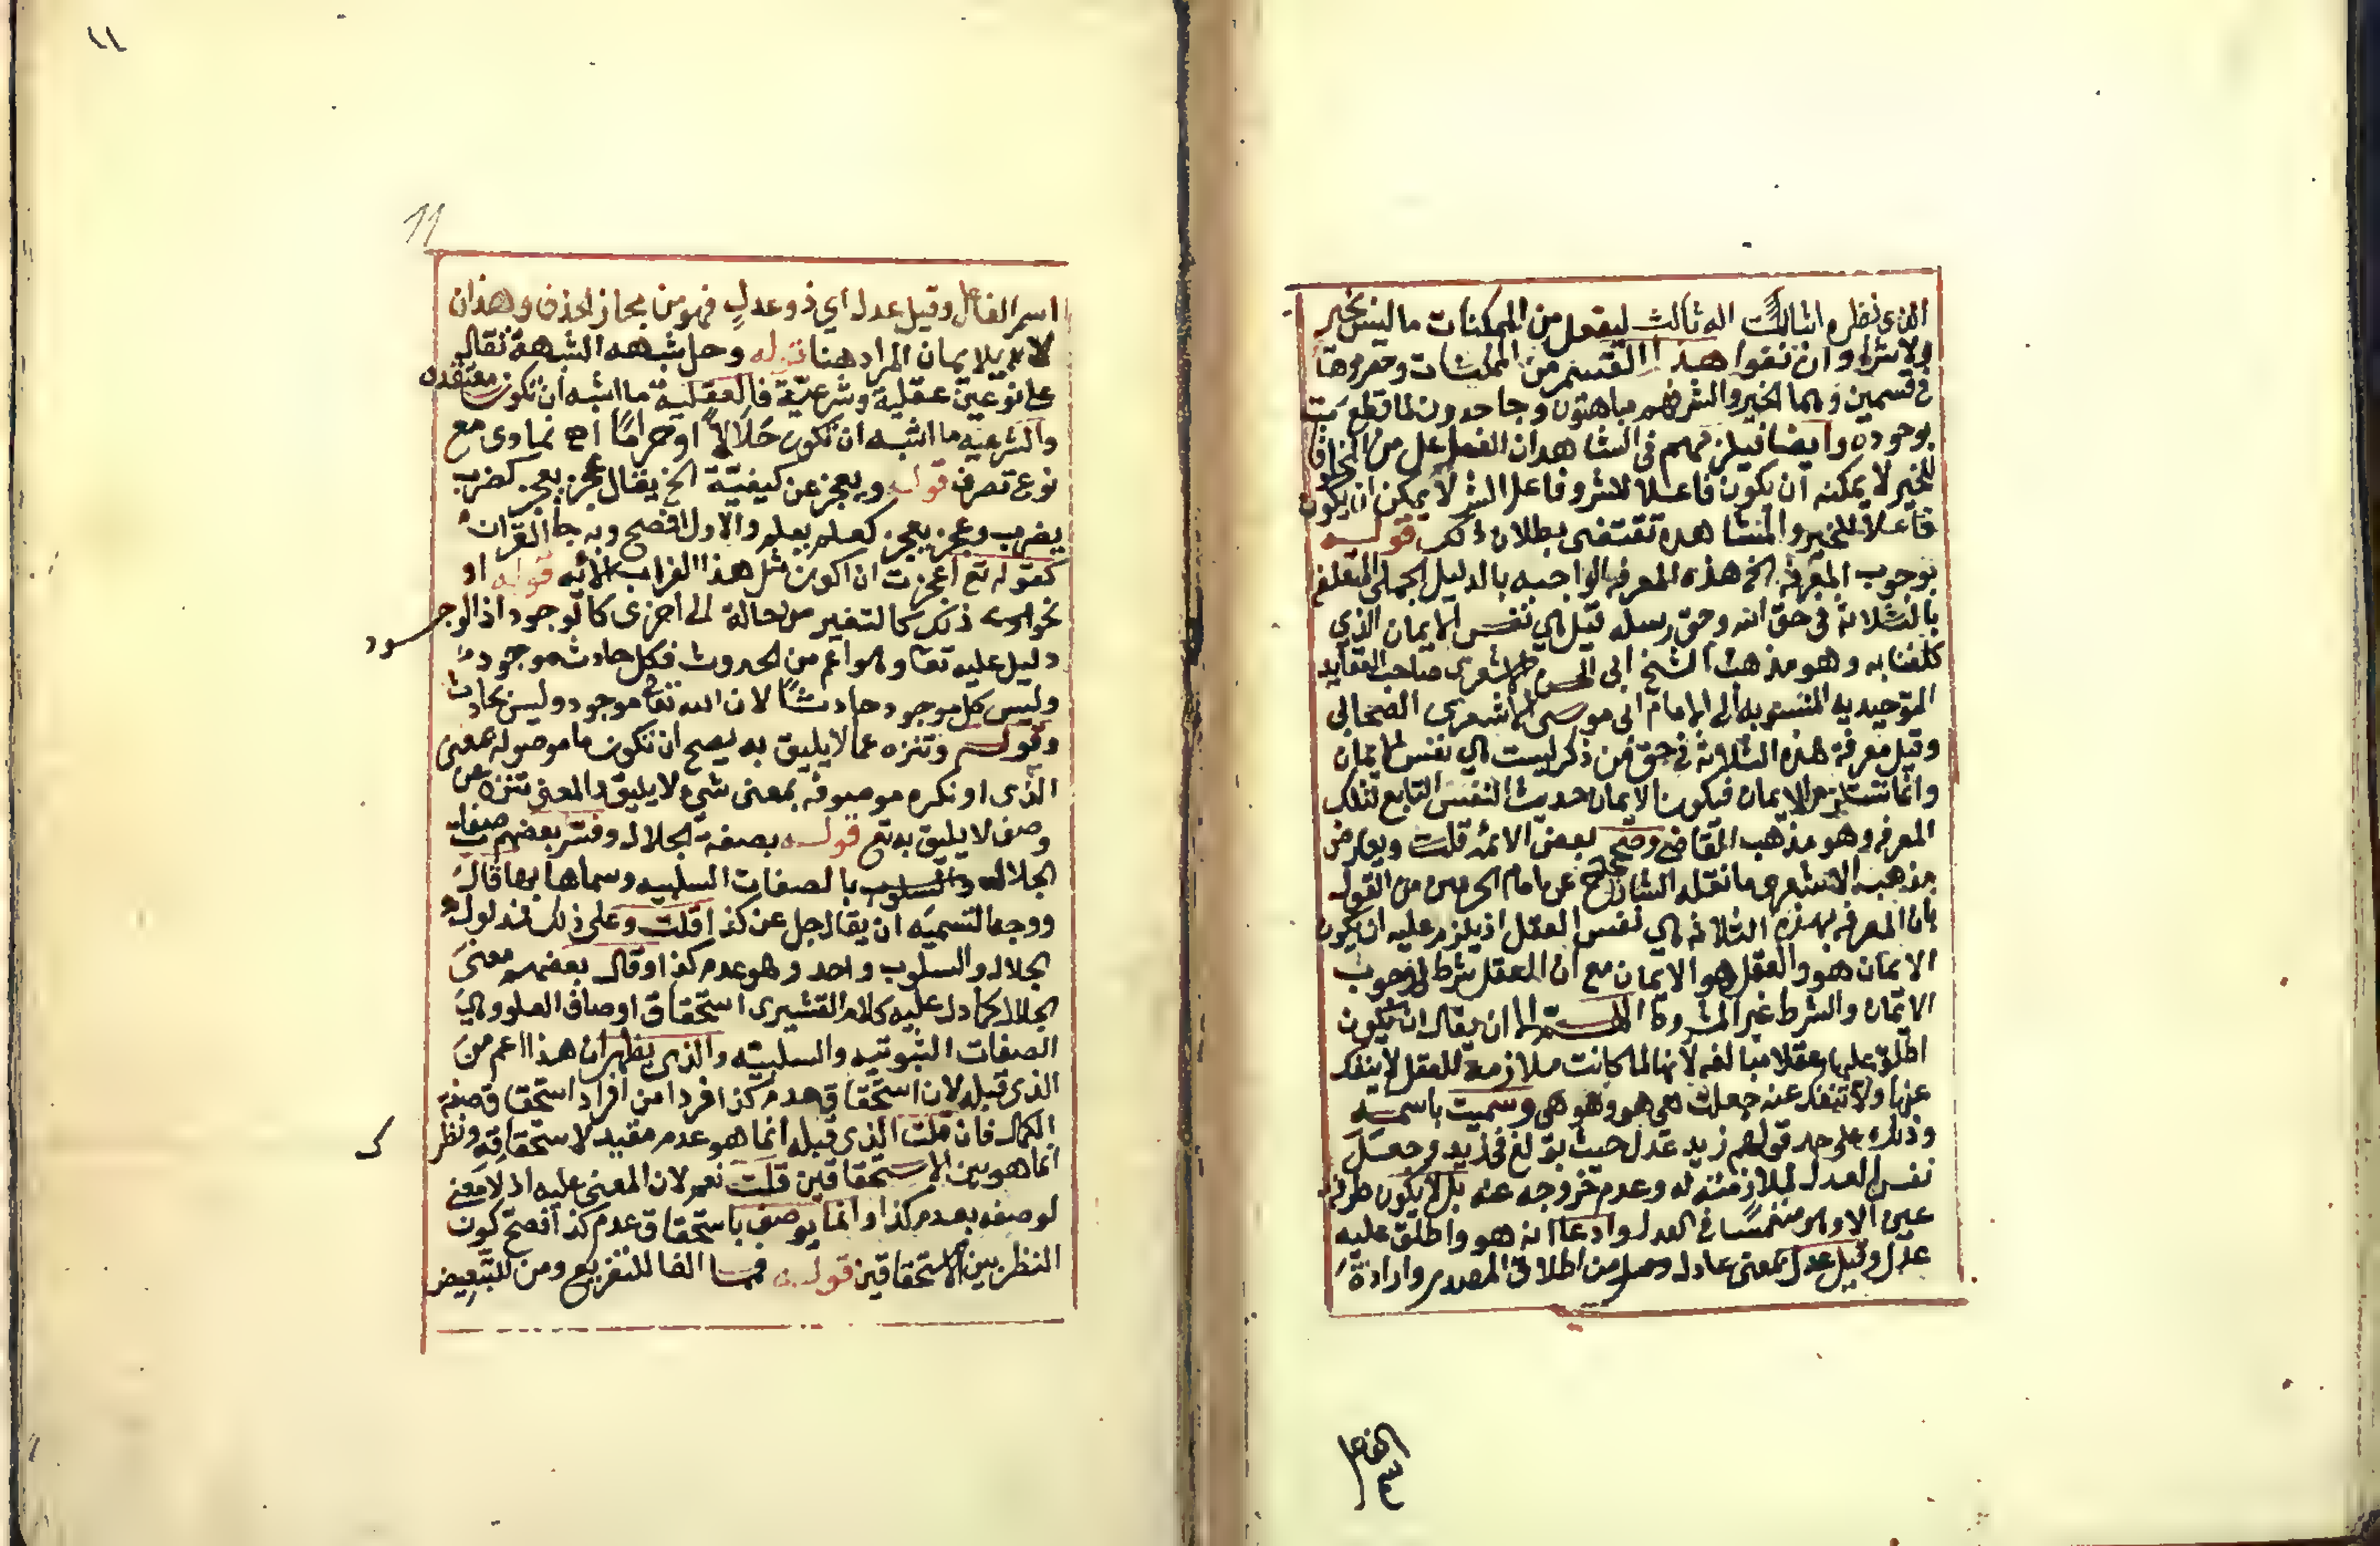 الذى نظره اثبالثت اله ثالث ليفعل من الممكنات ما ليس بخير
ولا شر وان نفوا هذا القسم من الممكنات وحصروها
فى قسمين وهما الخير والشر فهم مباهتون وجاحدون لما قطع
بوجوده وايضا فيلزمهم فى الشاهد ان الفعل على من
للخير لا يمكنه ان يكون فاعلا للشر وفاعل الشر لا يمكن ان يكون
فاعلا للخير والمشاهدة تقتضى بطلان ذلك قوله
بوجوب المعرفة الخ هذه المعرفة الواجبه بالدليل الجملى المتعلقة
بالثلاثة فى حق الله وحق رسله قيل هي نفس الايمان الذي
كلفنا به وهو مذهب الشيخ ابى الحسن الاشعرى صاحب العقايد
التوحيديه المنسوبه الى الامام ابى موسى الاشعرى الصحابى
وقيل معرفة هذه الثلاثة فى حق من ذكر ليست هي نفس الايمان
وانما تستلزم الايمان فيكون الايمان حديث النفس التابع لتلك
المعرفه وهو مذهب القاضى وصححه بعض الائمه قلت ويعارض
مذهب الاشعرى ما نقله الشارح عن امام الحرمين من القول
بان المعرفه بهذه الثلاثة هي نفس العقل اذ يلزم عليه ان يكون
الايمان هو والعقل هو الايمان مع ان العقل شرط لوجوب
الايمان والشرط غير المشروط اللهم الا ان يقال ان يكون
اطلق عليها عقلا مبالغه لانها لما كانت ملازمة للعقل لا ينفك
عنها ولا تنفك عنه جعلت هى هو وهو هى وسميت باسمه
وذلك على حد قولهم زيد عدل حيث بولغ فى زيد وجعل
نفس العدل لملازمته له وعدم خروجه عنه بل لا يكون طرفة
عين الا وهو منغمسا فى العدل وادعا انه هو واطلق عليه
عدل وقيل عدل بمعنى عادل وهو من اطلاق المصدر وارادة
الفاعل
١١
11
اسم الفاعل وقيل عدل اي ذو عدل فهو من مجاز الحذف وهذان
لا بالايمان المراد هنا قوله وحل شبهه الشبهة تقال
على نوعين عقلية وشرعية فالعقلية ما اشبه ان تكون معتقده
والشرعيه ما اشبه ان تكون حلالا او حراما اه نماوى مع
نوع تصرف قوله ويعجز عن كيفية الخ يقال عجز يعجز كضرب
يضرب وعجز يعجز كعلم يعلم والاول افصح وبه جا القران
كقوله تع اعجزت ان اكون مثل هذا الغراب الايه قوله او
نحو ذلك كالتغير من حالة الى اخرى كالوجود اذ الوجود
دليل عليه تعا وهو اعم من الحدوث فكل حادث موجود
وليس كل موجود حادثا لان الله تعا موجود وليس بحادث
وقوله وتنزه عما لا يليق به يصح ان تكون ما موصوله بمعنى
الذى او نكره موصوفه بمعنى شيء لا يليق والمعنى تنزه عن
وصف لا يليق به تع قوله بصفة الجلال وفسر بعضهم صفات
الجلال والسلوب بالصفات السلبيه وسماها بها قال
ووجه التسميه ان يقال جل عن كذا قلت وعلى ذلك فمدلول
الجلال والسلوب واحد وهو عدم كذا وقال بعضهم معنى
الجلال كما دل عليه كلام القشيرى استحقاق اوصاف العلو وهي
الصفات الثبوتيه والسلبيته والذى يظهر ان هذا اعم من
الذى قبله لان استحقاق عدم كذا فردا من افراد استحقاق صفة
الكمال فان قلت الذى قبله انما هو عدم مقيد لا استحقاقه ونظرك
انما هو بين الاستحقاقين قلت نعم لان المعنى عليه اذ لا معنى
لوصفه بعدم كذا وانما يوصف باستحقاق عدم كذا فصح كون
النظر بين الاستحقاقين قوله فمما الفا للتفريع ومن للتبعيض